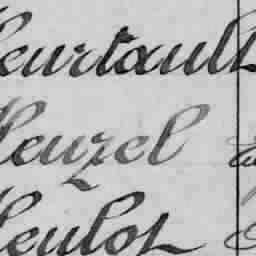 Heurtault
Heuzel
Heulot